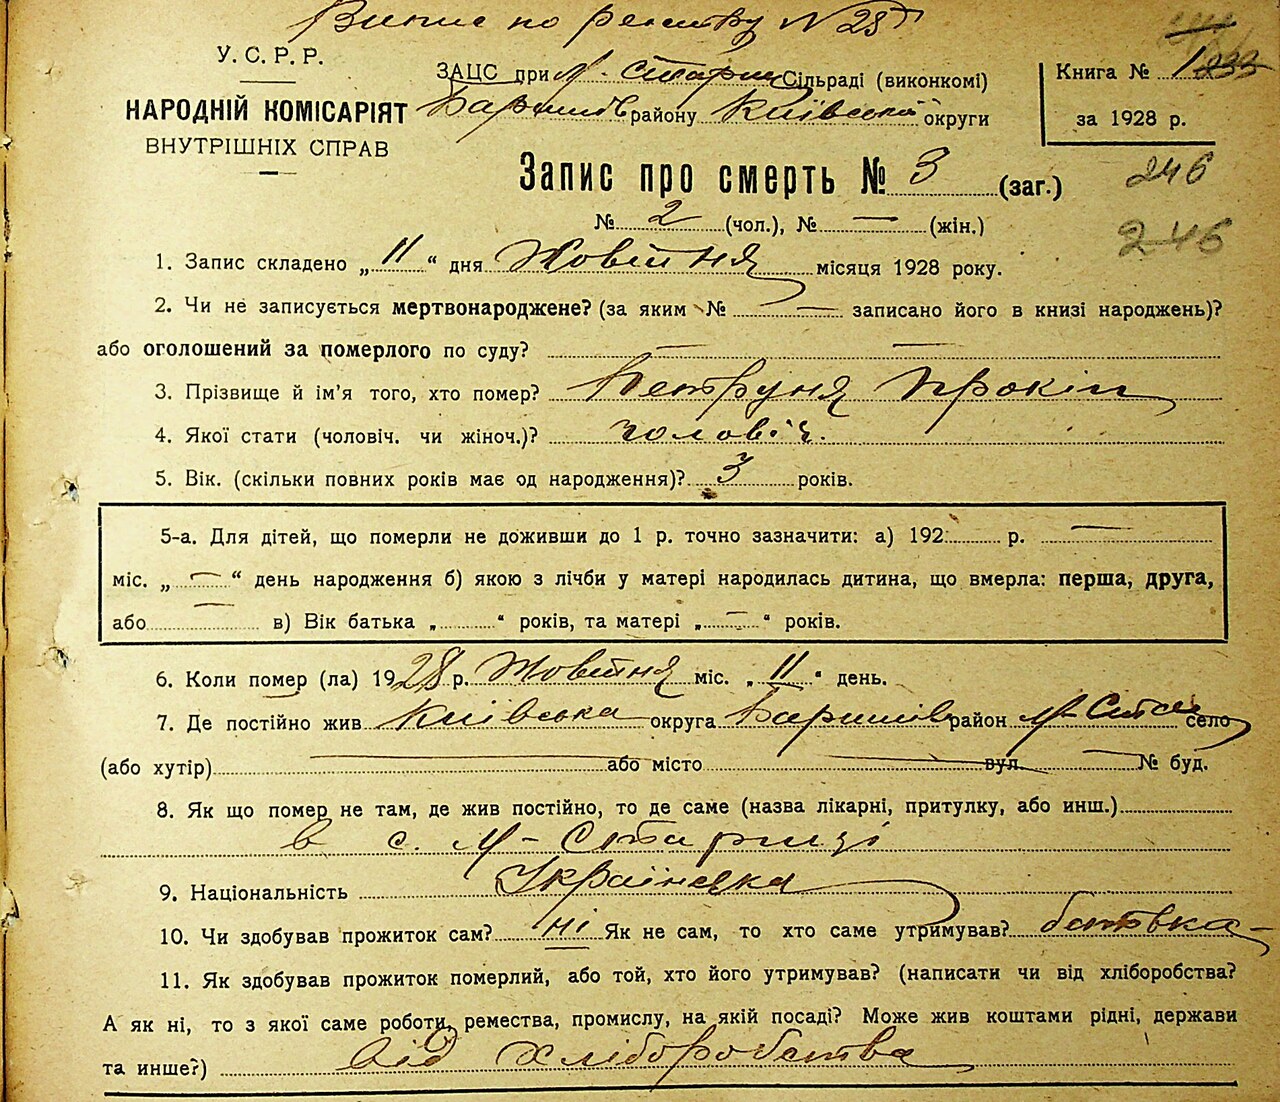 Випис по реєстру N 25
У. С. Р. Р.
НАРОДНІЙ КОМІСАРІЯТ
ВНУТРІШНІХ СПРАВ
ЗАЦС при М-Стариц Сільраді (виконкомі)
Баришів району Київської округи
Книга № 1 233
за 1928 р.
246
246
Запис про смерть № 3 (заг.)
№ 2 (чол.), № — (жін.)
1. Запис складено „ 11 “ дня Жовтня місяця 1928 року.
2. Чи не записується мертвонароджене? (за яким № — записано його в книзі народжень)?
або оголошений за померлого по суду? — —
3. Прізвище й ім'я того, хто помер? Петруня Прокіп
4. Якої стати (чоловіч. чи жіноч.)? чоловіч.
5. Вік. (скільки повних років має од народження)? 3 років.
5-а. Для дітей, що померли не доживши до 1 р. точно зазначити: а) 192 р. —
міс. „ — “ день народження б) якою з лічби у матері народилась дитина, що вмерла: перша, друга,
або — в) Вік батька „ “ років, та матері „ — “ років.
6. Коли помер (ла) 1928 р. Жовтня міс. „ 11 “ день.
7. Де постійно жив Київська округа Баришів район М-Ста село
(або хутір) — або місто — вул. — № буд.
8. Як що помер не там, де жив постійно, то де саме (назва лікарні, притулку, або инш.)
в с. М-Стариці
9. Національність Українська
10. Чи здобував прожиток сам? ні Як не сам, то хто саме утримував? батька
11. Як здобував прожиток померлий, або той, хто його утримував? (написати чи від хліборобства?
А як ні, то з якої саме роботи, ремества, промислу, на якій посаді? Може жив коштами рідні, держави
та инше?) від хліборобства